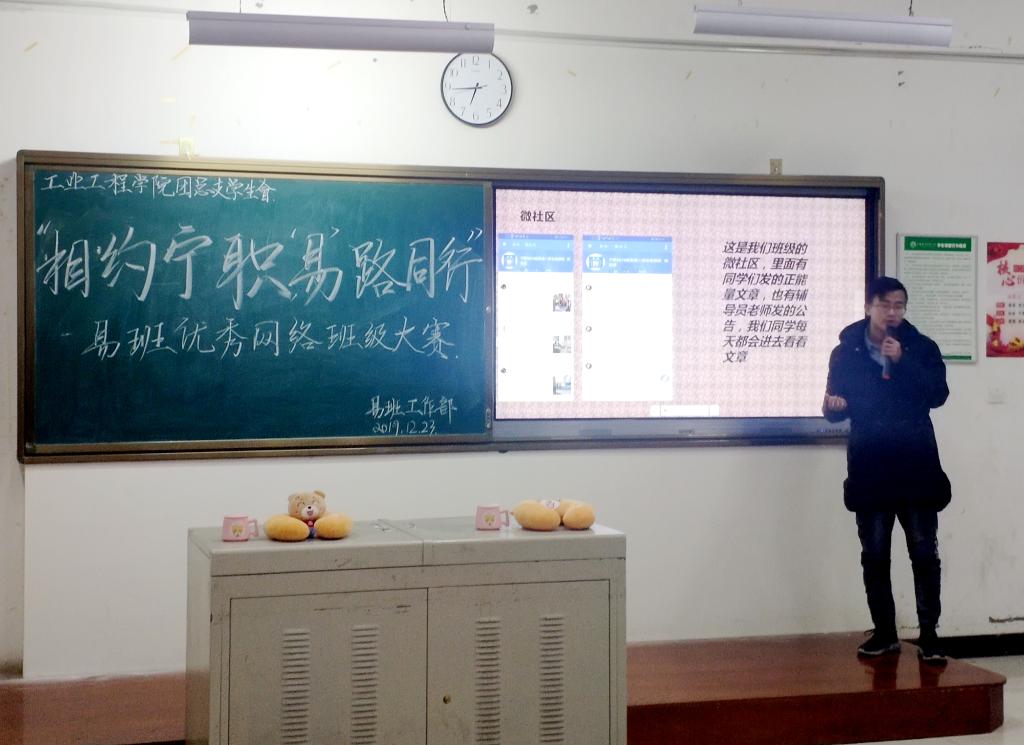 工业工程学院团总支学生會
"相约宁职'易'路同行"
-易班优秀网络班级大赛
易班工作部
2019.12.23
微社区
这是我们班级的
微社区，里面有
同学们发的正能
量文章，也有辅
导员老师发的公
告，我们同学每
天都会进去看看
文章
12
1
2
3
4
5
6
7
8
9
10
11
核
心